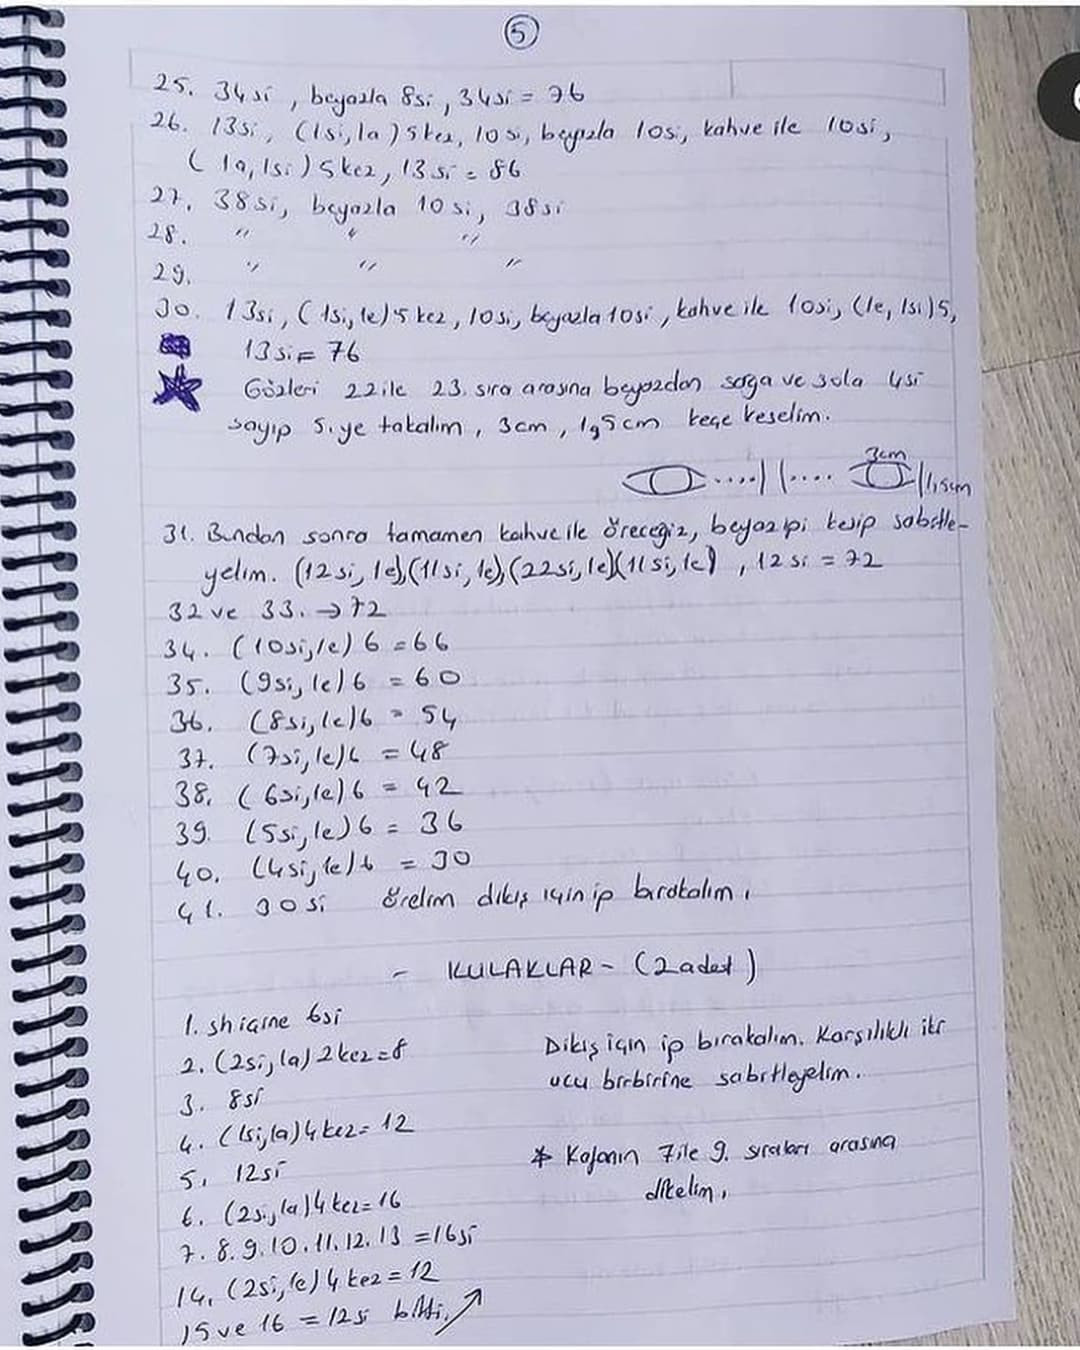 5
25. 34si, beyazla 8si, 34si = 76
26. 13si, (1si, 1a) 5kez, 10si, beyazla 10si, kahve ile 10si,
(1a, 1si) 5kez, 13si = 86
27. 38si, beyazla 10si, 38si
28. " " "
29. " " "
30. 13si, (1si, 1e) 5 kez, 10si, beyazla 10si, kahve ile 10si, (1e, 1si) 5,
13si = 76
Gözleri 22 ile 23. sıra arasına beyazdan sağa ve sola 4si
sayıp 5.ye takalım, 3cm, 1,5cm keçe keselim.
3cm
1,5cm
31. Bundan sonra tamamen kahve ile öreceğiz, beyaz ipi kesip sabitle-
yelim. (12si, 1e), (11si, 1e), (22si, 1e) (11si, 1e), 12si = 72
32 ve 33. → 72
34. (10si, 1e) 6 = 66
35. (9si, 1e) 6 = 60
36. (8si, 1e) 6 = 54
37. (7si, 1e) 6 = 48
38. (6si, 1e) 6 = 42
39. (5si, 1e) 6 = 36
40. (4si, 1e) 6 = 30
41. 30si örelim dikiş için ip bırakalım.
- KULAKLAR - (2 adet)
1. sh içine 6si
2. (2si, 1a) 2 kez = 8
3. 8si
4. (1si, 1a) 4 kez = 12
5. 12si
6. (2si, 1a) 4 kez = 16
7. 8. 9. 10. 11. 12. 13 = 16si
14. (2si, 1e) 4 kez = 12
15 ve 16 = 12si bitti.
Dikiş için ip bırakalım. Karşılıklı iki
ucu birbirine sabitleyelim.
* Kafanın 7 ile 9. sıraları arasına
dikelim.